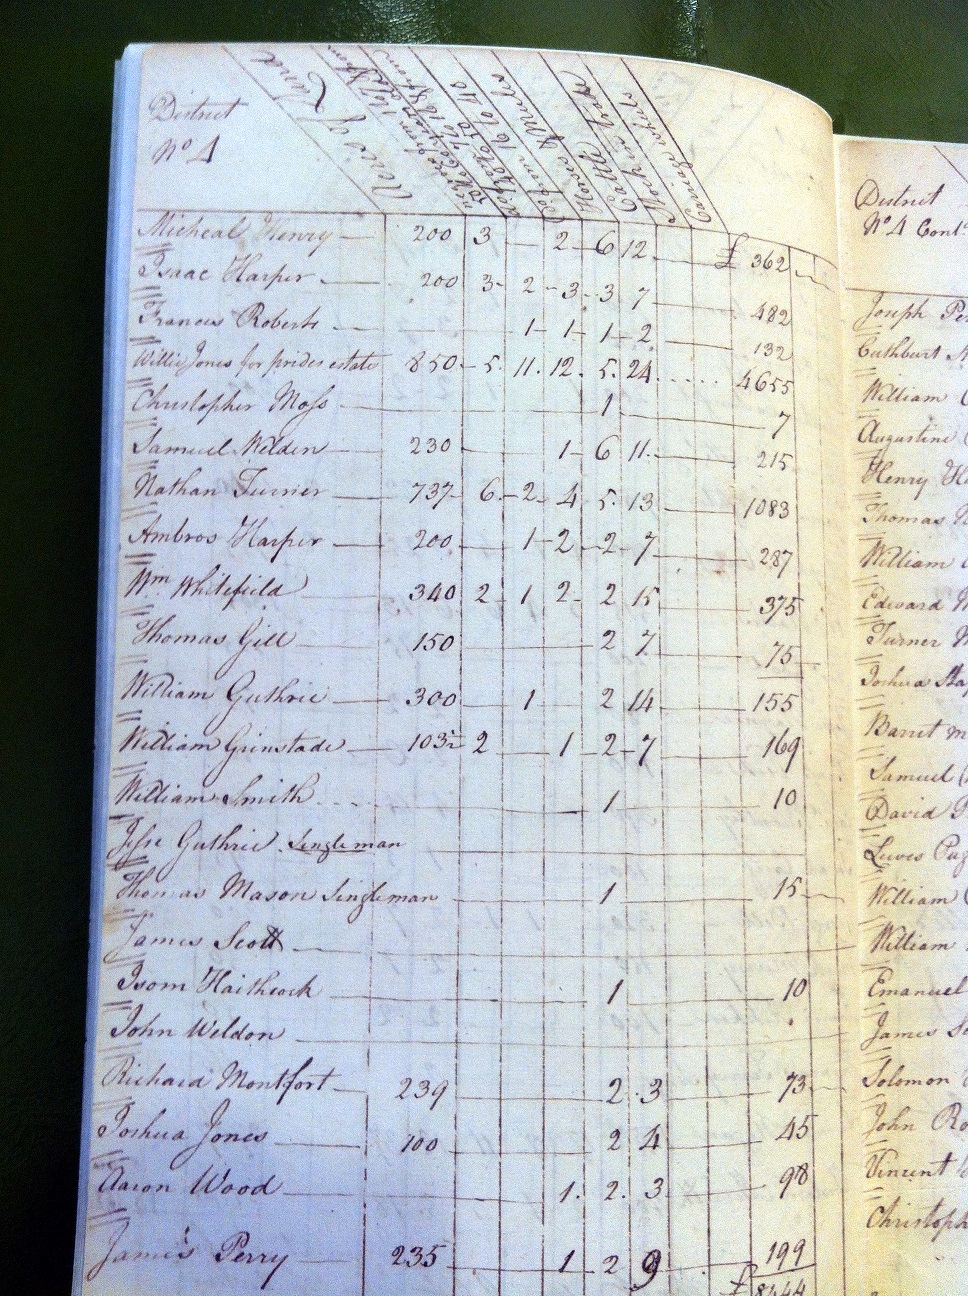 District
No 1
Acres of Land
Horses & Mules
Cattle
Carriage wheels
Micheal Henry 200 3 2 6 12 £ 362
Isaac Harper 200 3 2 3 3 7 482
Francis Roberts 1 1 1 2 132
Willie Jones for prides estate 850 5 11 12 5 24 4655
Christopher Moss 1 7
Samuel Weldin 230 1 6 11 215
Nathan Turner 737 6 2 4 5 13 1083
Ambros Harper 200 1 2 2 7 287
Wm Whitefield 340 2 1 2 2 15 375
Thomas Gill 150 2 7 75
William Guthrie 300 1 2 14 155
William Grinstade 103½ 2 1 2 7 169
William Smith 1 10
Jesse Guthrie Singleman
Thomas Mason Singleman 1 15
James Scott
Isom Haithcock 1 10
John Weldon
Richard Montfort 239 2 3 73
Joshua Jones 100 2 4 45
Aaron Wood 1 2 3 98
James Perry 235 1 2 9 199
£ 8444
District
No 1 Cont
Joseph
Cuthburt
William
Augustine
Henry
Thomas
William
Edward
Turner
Joshua
Barret
Samuel
David
Lewis
William
William
Emanuel
James
Solomon
John
Vincent
Christoph